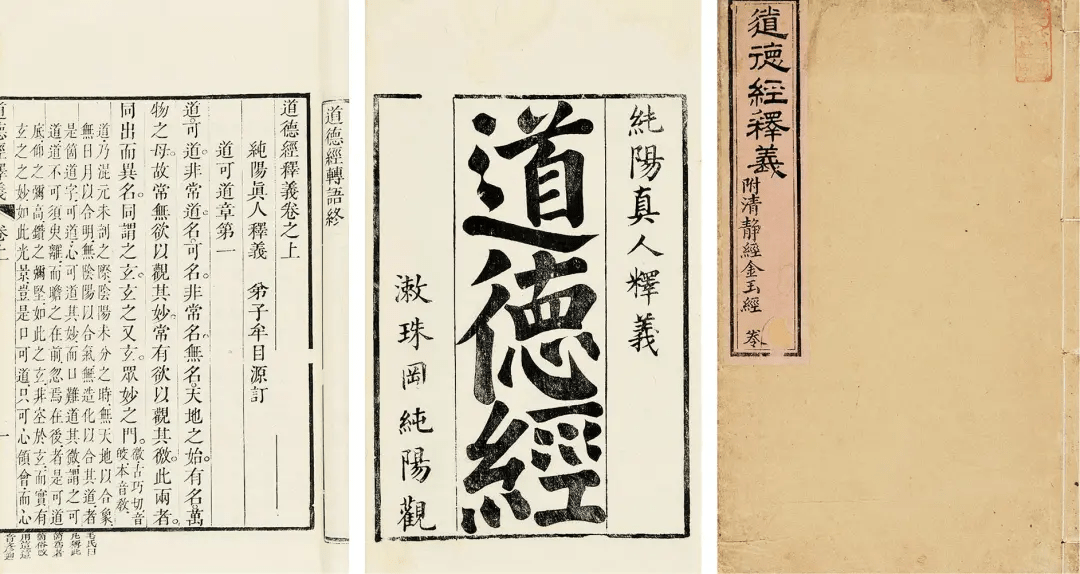 道德經釋義
附清靜經金玉經
純陽真人釋義
道德經
漱珠岡純陽觀
道德經轉語終
道德經釋義卷之上
純陽眞人釋義 弟子牟目源訂
道可道章第一
道可道。非常道。名可名。非常名。無名。天地之始。有名萬
物之母。故常無欲以觀其妙。常有欲以觀其徼。此兩者。
同出而異名。同謂之玄。玄之又玄。眾妙之門。
徼古巧切音
本音敎
道乃混元未剖之際陰陽未分之時無天地以合象
無日月以合明無陰陽以合氣無造化以合其道者
是箇道字可道心可道其妙而口難道其微謂之可
道道不可須臾離而瞻之在前忽焉在後者是可道
底仰之彌高鑽之彌堅如此之玄非空於玄而實有
玄之之妙如此光景豈是口可道只可心領會而心
道德經釋義 卷上 一